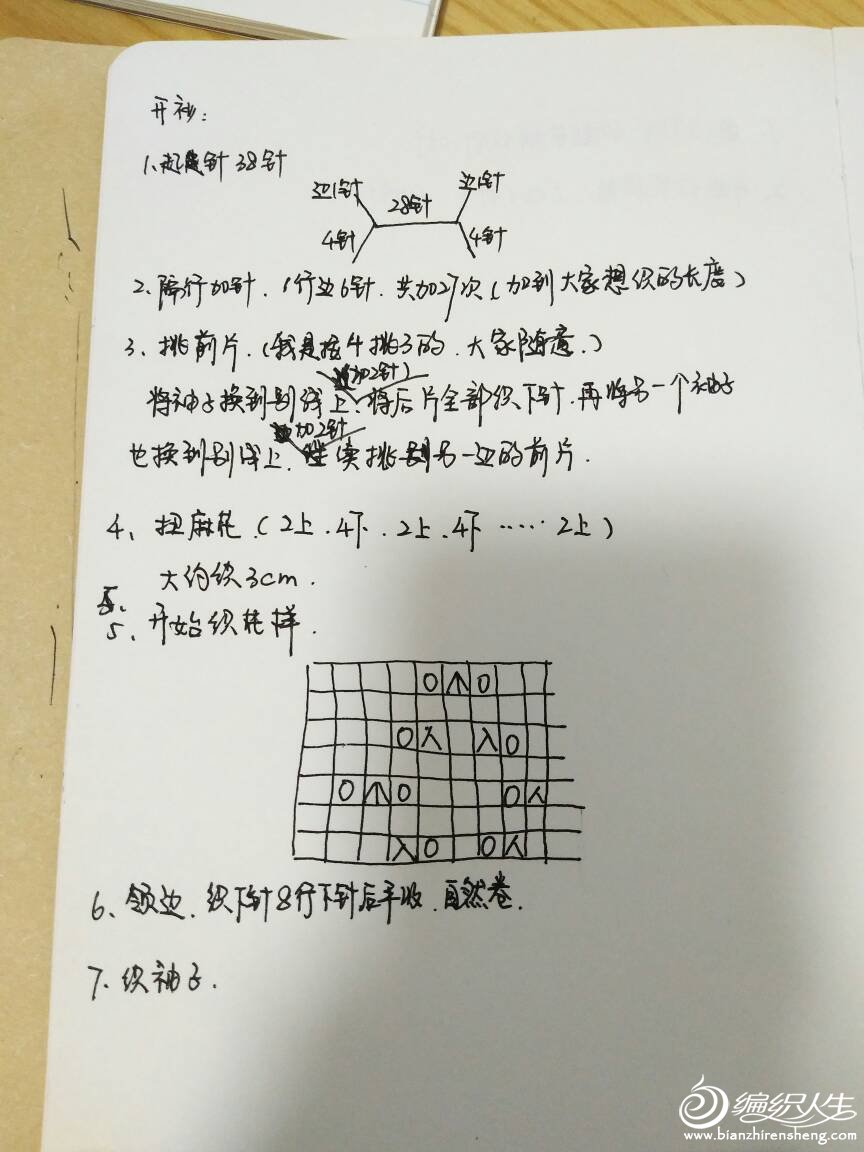 开衫:
1、起针 38针
边1针 28针 边1针
4针 4针
2、隔行加针、1行边6针、共加27次(加到大家想织的长度)
3、挑前片、(我是按4挑3的、大家随意、)
(加2针)
将袖子换到别线上、将后片全部织下针、再将另一个袖子
加2针
也换到别线上、继续挑另一边的前片.
4、扭麻花、(2上、4下、2上、4下……2上)
大约织3cm.
5、开始织花样.
O 个 O
O 人 入 O
O 个 O O 人
入 O O 人
6、领边、织下针8行下针后平收、自然卷.
7、织袖子.
编织人生
www.bianzhirensheng.com